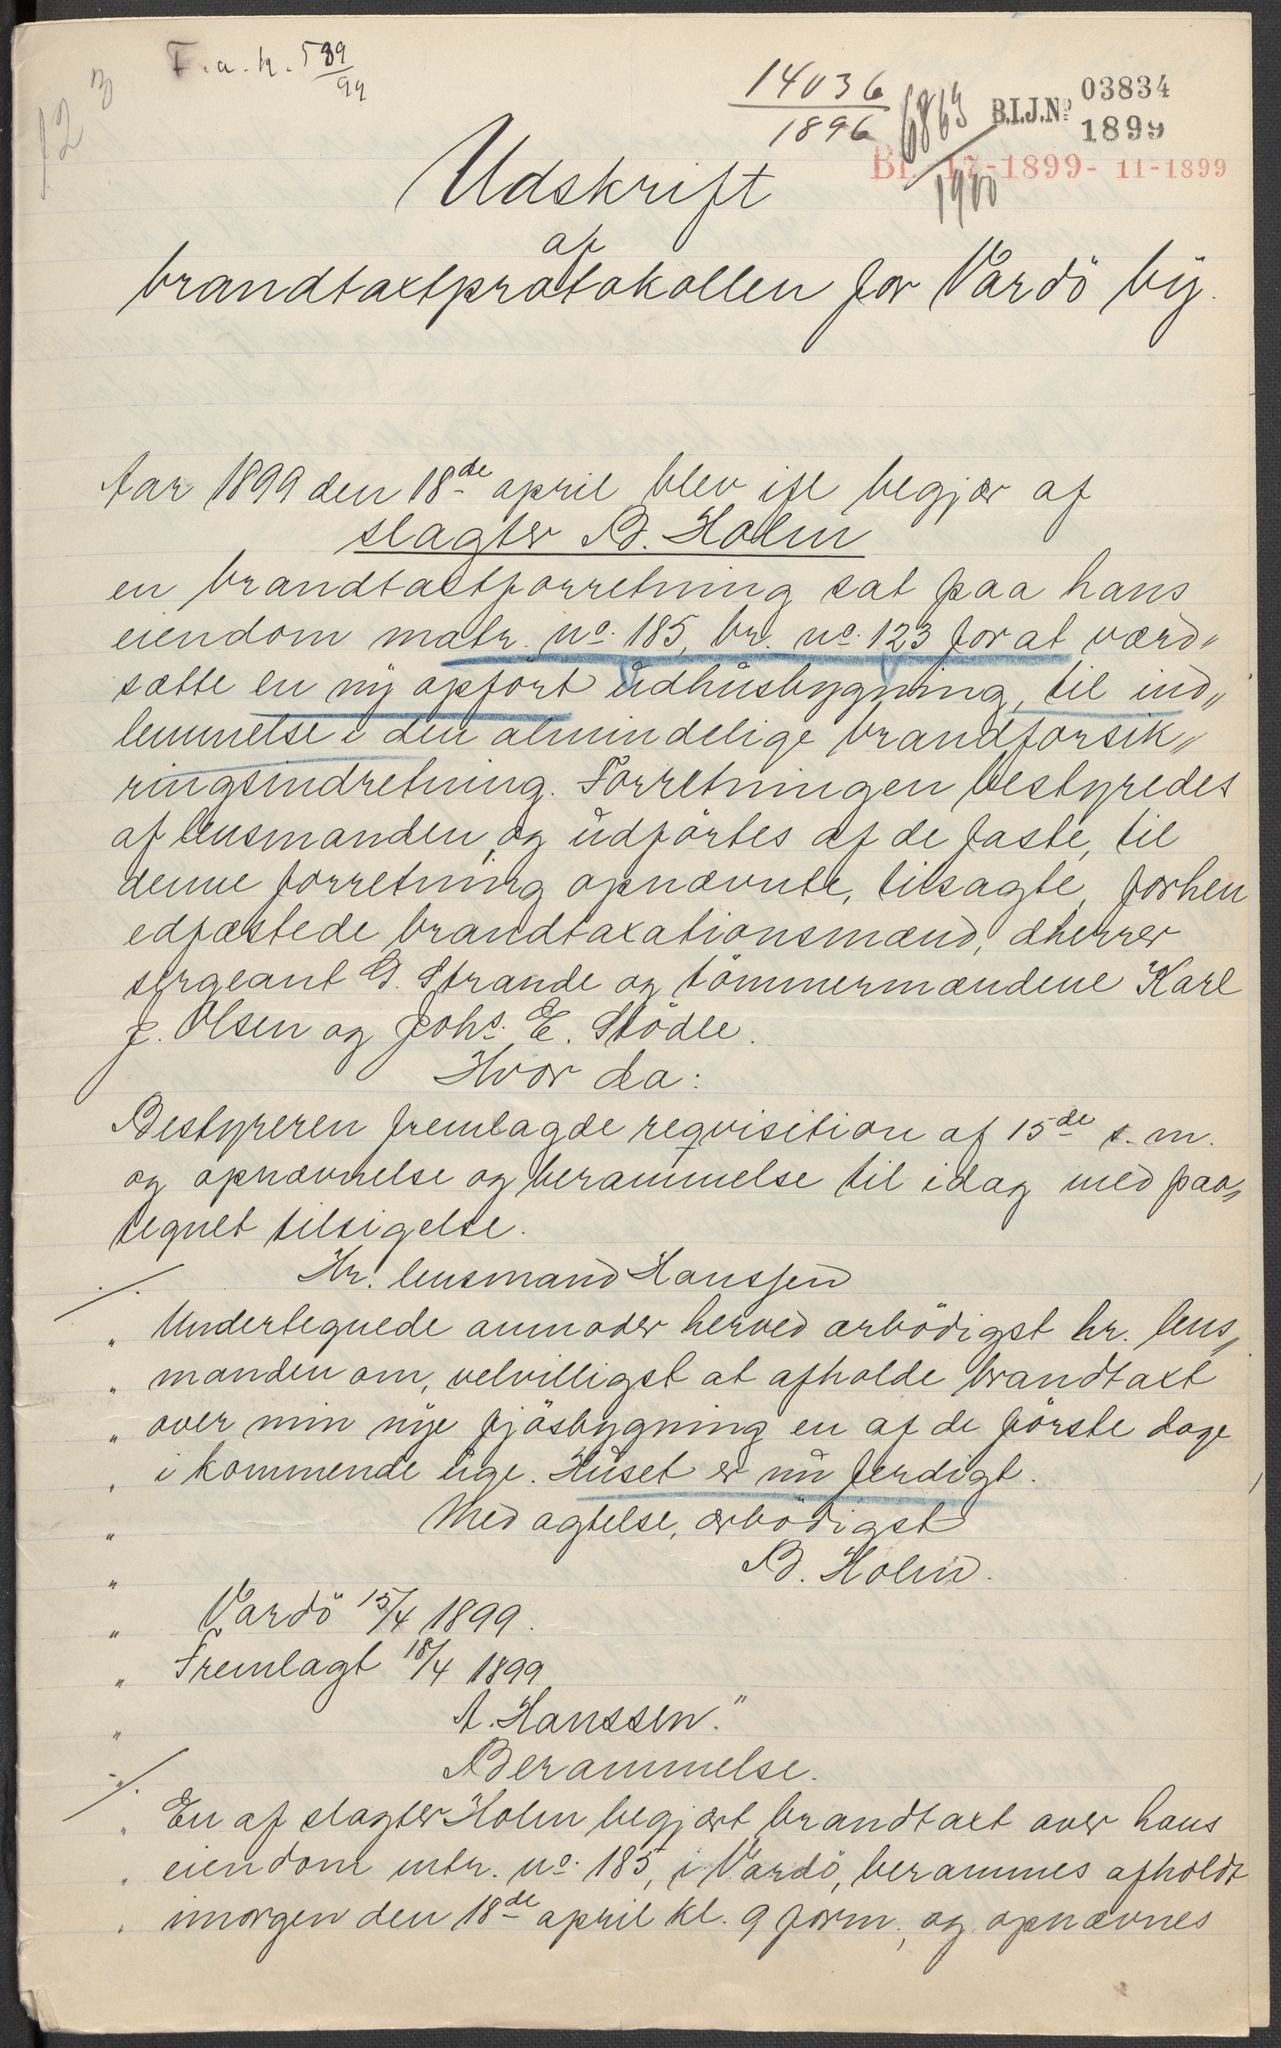 F.a.k. 589/94
14036
1896
6863
1900
B.I.J.No 03834
1899
Bf. 17-1899- 11-1899
Udskrift
af
brandtaxtprotokollen for Vardö by.
Aar 1899 den 18de april blev ifl begjær af
slagter B. Holm
en brandtaxtforretning sat paa hans
eiendom matr. no. 185, br. no. 123 for at værd„
sætte en ny opført udhusbygning, til ind„
lemmelse i den almindelige brandforsik„
ringsindretning. Forretningen bestyredes
af lensmanden, og udförtes af de faste, til
denne forretning opnævnte, tilsagte, forhen
edfæstede brandtaxationsmænd, dherrer
sergeant G. Strande og tömmermændene Karl
J. Olsen og Johs. E. Stödle.
Hvor da:
Bestyreren fremlagde reqvisition af 15de s. m.
og opnævnelse og berammelse til idag med paa„
tegnet tilsigelse.
Hr. lensmand Hanssen
„ Undertegnede anmoder herved ærbödigst hr. lens„
„ manden om, velvilligst at afholde brandtaxt
„ over min nye fjösbygning en af de förste dage
„ i kommende uge. Huset er nu ferdigt.
„ Med agtelse, ærbödigst
„ B. Holm.
„ Vardö 15/4 1899.
„ Fremlagt 18/4 1899
„ A. Hanssen."
Berammelse.
„ En af slagter Holm begjært brandtaxt over hans
„ eiendom mtr. no. 185, i Vardö, berammes afholdt
„ imorgen den 18de april kl. 9 form., og opnævnes